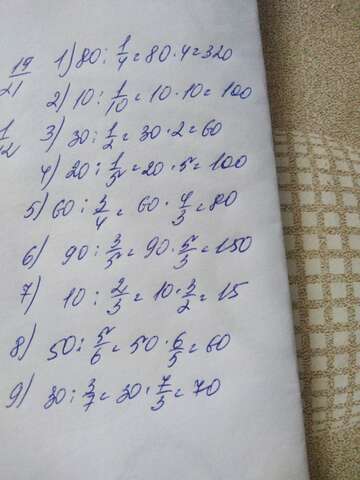 19/21
1) 80 : 1/4 = 80 · 4 = 320
2) 10 : 1/10 = 10 · 10 = 100
1/12
3) 30 : 1/2 = 30 · 2 = 60
4) 20 : 1/5 = 20 · 5 = 100
5) 60 : 3/4 = 60 · 4/3 = 80
6) 90 : 3/5 = 90 · 5/3 = 150
7) 10 : 2/3 = 10 · 3/2 = 15
8) 50 : 5/6 = 50 · 6/5 = 60
9) 30 : 3/7 = 30 · 7/3 = 70